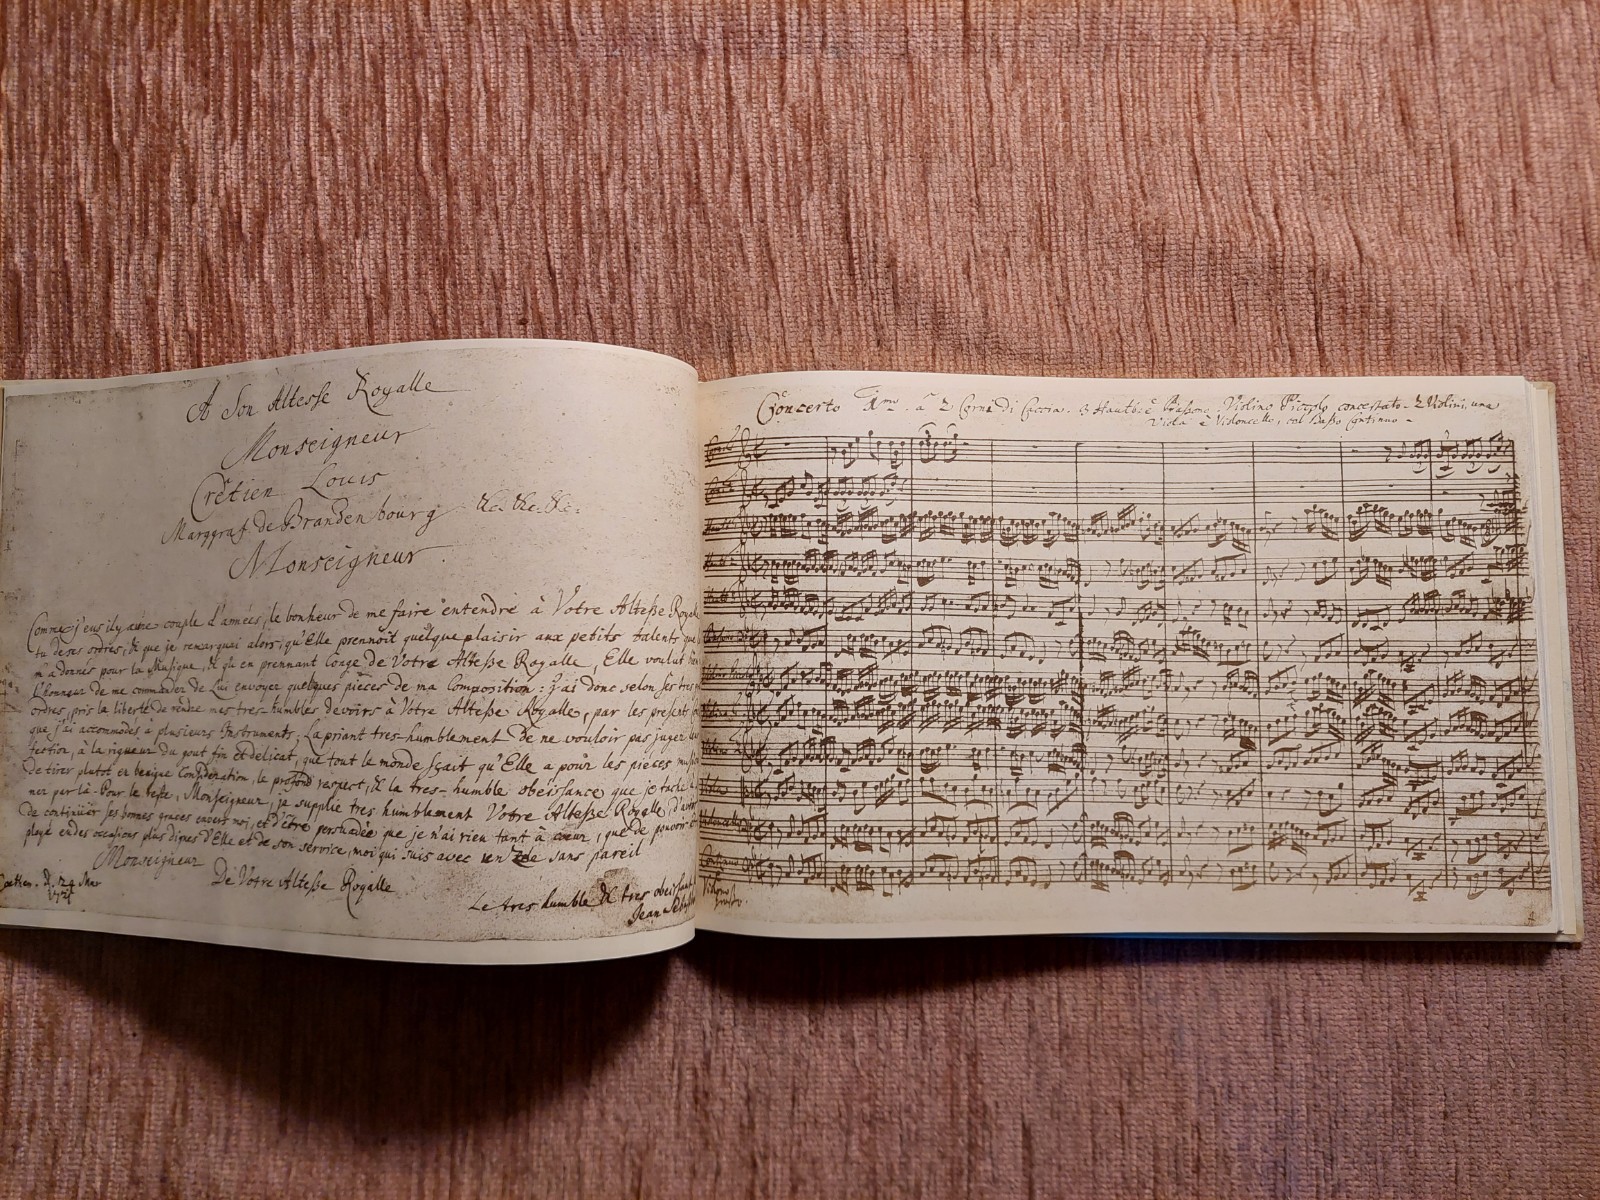 A Son Altesse Royalle
Monseigneur
Crêtien Louis
Marggraf de Brandenbourg &c. &c. &c.
Monseigneur
Comme j'eus il y a une couple d'années, le bonheur de me faire entendre à Votre Alteße Royalle
tu de ses ordres, & que je remarquai alors, qu'Elle prennoit quelque plaisir aux petits talents que
m'a donnés pour la Musique, & qu'en prennant Conge de Votre Alteße Royalle, Elle voulut bien
l'honneur de me commander de Lui envoyer quelques pieces de ma Composition: j'ai donc selon ses tres
ordres, pris la liberté de rendre mes tres-humbles devoirs à Votre Alteße Royalle, par les presents
que j'ai accommodés à plusieurs Instruments; La priant tres-humblement de ne vouloir pas juger
fection, à la rigueur du gout fin et delicat, que tout le monde sçait qu'Elle a pour les pieces
de tirer plutot en benigne Consideration, le profond respect, & la tres-humble obeissance que je tache à
ner par là. Pour le reste, Monseigneur, je supplie tres humblement Votre Alteße Royalle, d'avoir
de continüer ses bonnes graces envers moi, et d'être persuadèe que je n'ai rien tant à cœur, que de pouvoir
ployé en des occasions plus dignes d'Elle et de son service, moi qui suis avec un zele sans pareil
Monseigneur
De Votre Alteße Royalle
Coethen. d. 24 Mar
1721
Le tres humble & tres obeissant
Jean Sebastien
Concerto 1mo à 2 Corni di Caccia. 3 Hautb: è Baßono. Violino Piccolo concertato. 2 Violini, una
Viola è Violoncello, col Baßo Continuo.
Corno 1
Corno 2
Hautb. 1
Hautb. 2
Hautb. 3
Baßono
Violino Piccolo
Violino 1
Violino 2
Viola
Violoncello
Continuo è
Violono
großo.